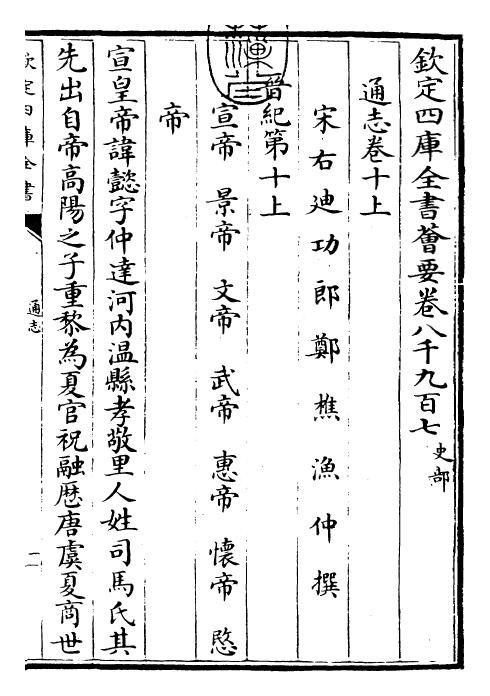 欽定四庫全書薈要卷八千九百七 史部
通志卷十上
宋右迪功郎鄭樵漁仲撰
晉紀第十上
宣帝 景帝 文帝 武帝 惠帝 懷帝 愍
帝
宣皇帝諱懿字仲達河内温縣孝敬里人姓司馬氏其
先出自帝高陽之子重黎為夏官祝融歴唐虞夏商世
欽定四庫全書
通志